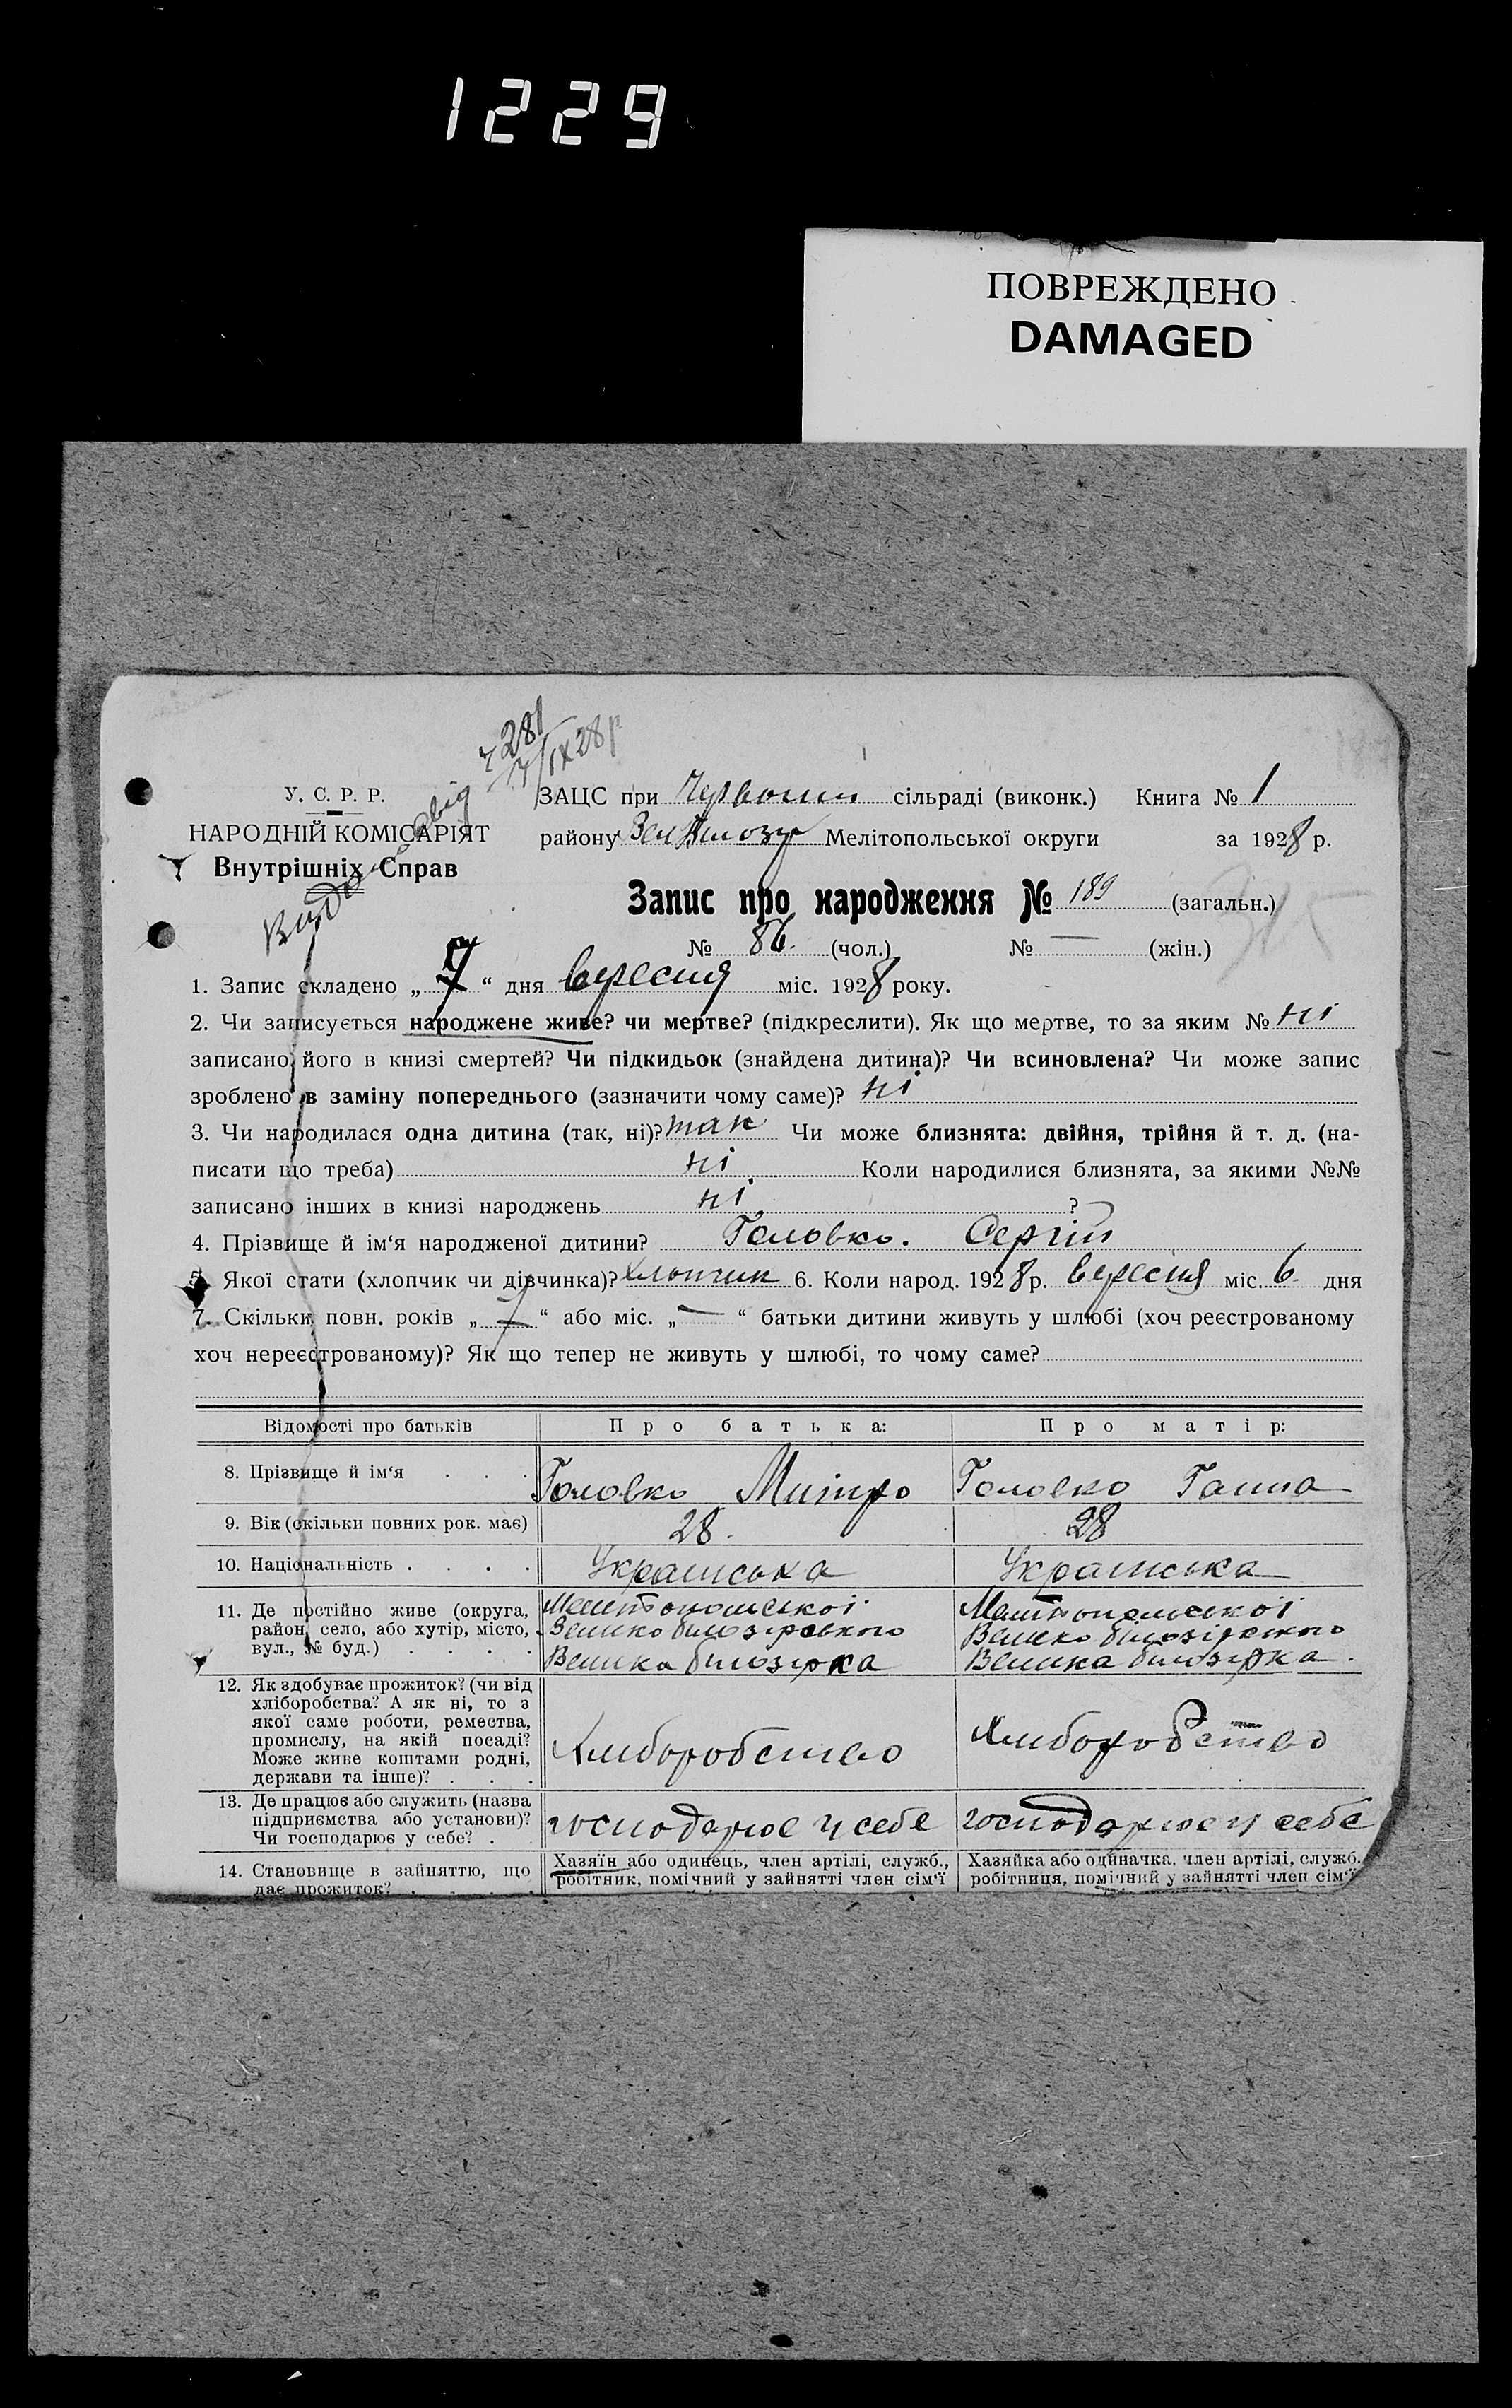 1229
ПОВРЕЖДЕНО
DAMAGED
281
7/IX 28 р
У. С. Р. Р.
НАРОДНІЙ КОМІСАРІЯТ
Внутрішніх Справ
ЗАЦС при Червоній сільраді (виконк.) Книга № 1
району Мелітопольської округи за 1928 р.
Запис про народження № 189 (загальн.)
315
№ 86 (чол.) № — (жін.)
1. Запис складено „ 7 “ дня вересня міс. 1928 року.
2. Чи записується народжене живе? чи мертве? (підкреслити). Як що мертве, то за яким № ні
записано його в книзі смертей? Чи підкидьок (знайдена дитина)? Чи всиновлена? Чи може запис
зроблено в заміну попереднього (зазначити чому саме)? ні
3. Чи народилася одна дитина (так, ні)? так Чи може близнята: двійня, трійня й т. д. (на-
писати що треба) ні Коли народилися близнята, за якими №№
записано інших в книзі народжень ні ?
4. Прізвище й ім‘я народженої дитини? Головко. Сергій
5. Якої стати (хлопчик чи дівчинка)? Хлопчик 6. Коли народ. 1928 р. вересня міс. 6 дня
7. Скільки повн. років „ 7 “ або міс. „ — “ батьки дитини живуть у шлюбі (хоч реєстрованому
хоч нереєстрованому)? Як що тепер не живуть у шлюбі, то чому саме?
Відомості про батьків Про батька: Про матір:
8. Прізвище й ім‘я . . . Головко Митро Головко Ганна
9. Вік (скільки повних рок. має) 28. 28
10. Національність . . . . Українська Українська
11. Де постійно живе (округа,
район, село, або хутір, місто,
вул., № буд.) . . . .
Мелітопольської
Велико білозірського
Велика білозірка
Мелітопольської
Велико білозірського
Велика білозірка.
12. Як здобуває прожиток? (чи від
хліборобства? А як ні, то з
якої саме роботи, ремества,
промислу, на якій посаді?
Може живе коштами родні,
держави та інше)? . . .
Хліборобство Хліборобство
13. Де працює або служить (назва
підприємства або установи)?
Чи господарює у себе? .
господарює у себе господарює у себе
14. Становище в зайняттю, що
дає прожиток? . . . .
Хазяїн або одинець, член артілі, служб.,
робітник, помічний у зайнятті член сім'ї
Хазяйка або одиначка, член артілі, служб.
робітниця, помічний у зайнятті член сім'ї